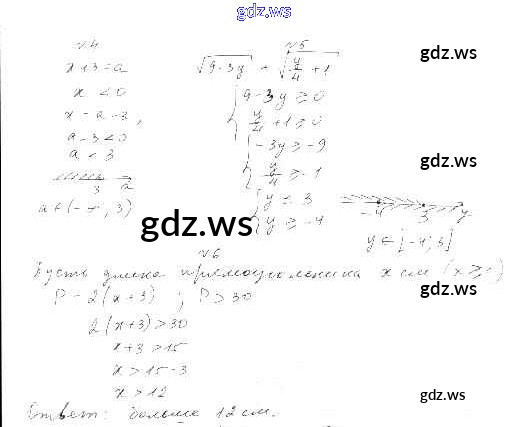 gdz.ws
№4
x+3=a
x < 0
x = a-3,
a-3<0
a < 3
3 a
a ∈ (-∞, 3)
№5
√9-3y + √y/4 + 1
{ 9-3y ≥ 0
y/4 + 1 ≥ 0
{ -3y ≥ -9
y/4 ≥ -1
{ y ≤ 3
y ≥ -4
-4 3 y
y ∈ [-4; 3]
gdz.ws
gdz.ws
gdz.ws
№6
Пусть длина прямоугольника x см
P = 2(x+3) ; P > 30
gdz.ws
2(x+3) > 30
x+3 > 15
x > 15-3
x > 12
gdz.ws
Ответ: больше 12 см.